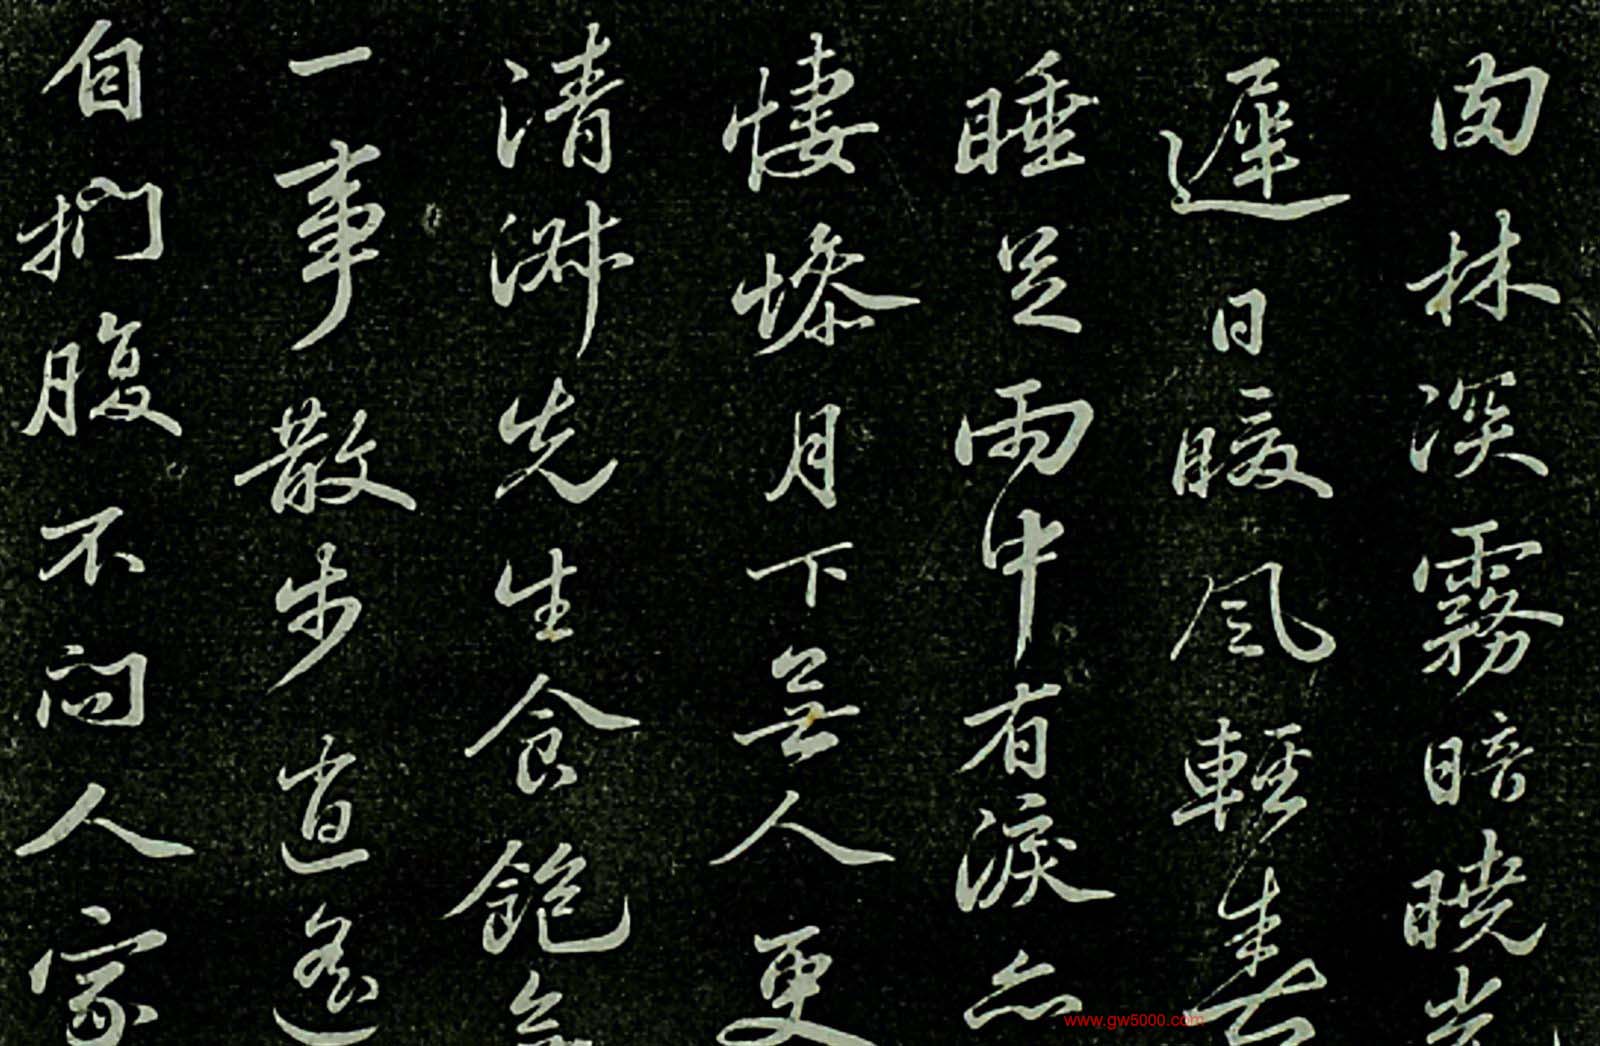 肉林深霧暗曉光
遲日暖風輕春
睡足雨中有淚亦
悽慘月下無人更
清淑先生食飽無
一事散步逍遙
自捫腹不問人家
www.gw5000.com